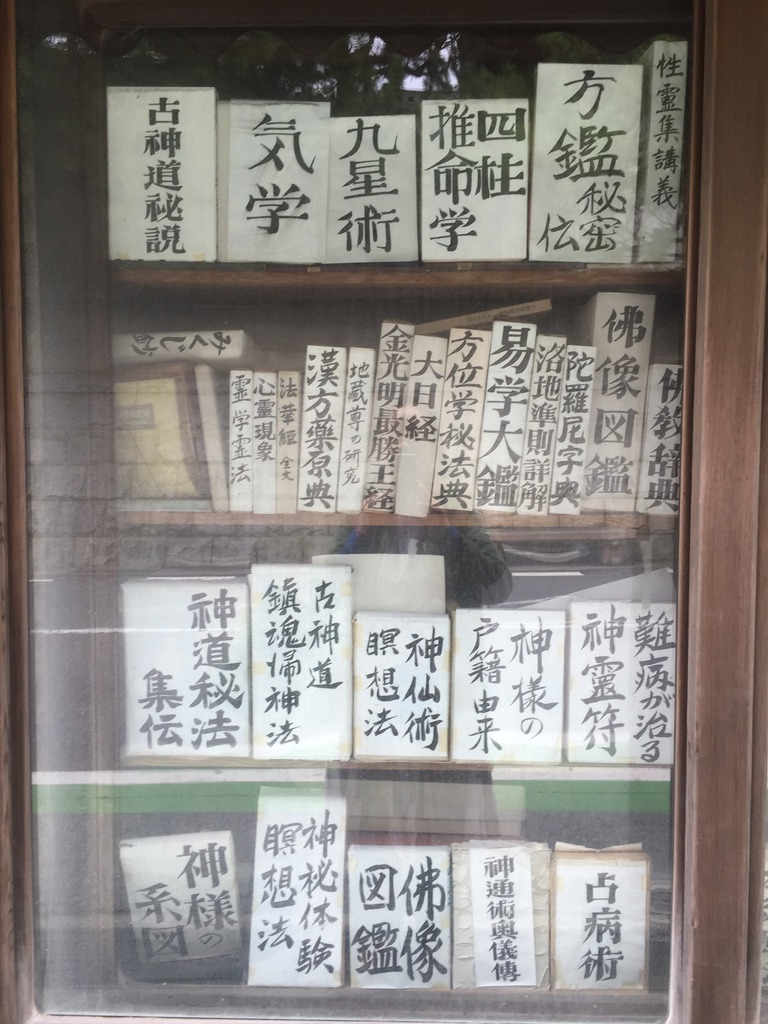 古神道秘説
気学
九星術
四柱
推命学
方鑑
秘密
伝
性霊集講義
みくじ
霊学霊法
心霊現象
法華経 全文
漢方薬原典
地蔵尊の研究
金光明最勝王経
大日経
方位学秘法典
易学大鑑
洛地準則詳解
陀羅尼字典
佛像図鑑
佛教辞典
神道秘法
集伝
古神道
鎮魂帰神法
神仙術
瞑想法
神様の
戸籍由来
難病が治る
神霊符
神様の
系図
神秘体験
瞑想法
佛像
図鑑
神運術奥儀傳
占病術